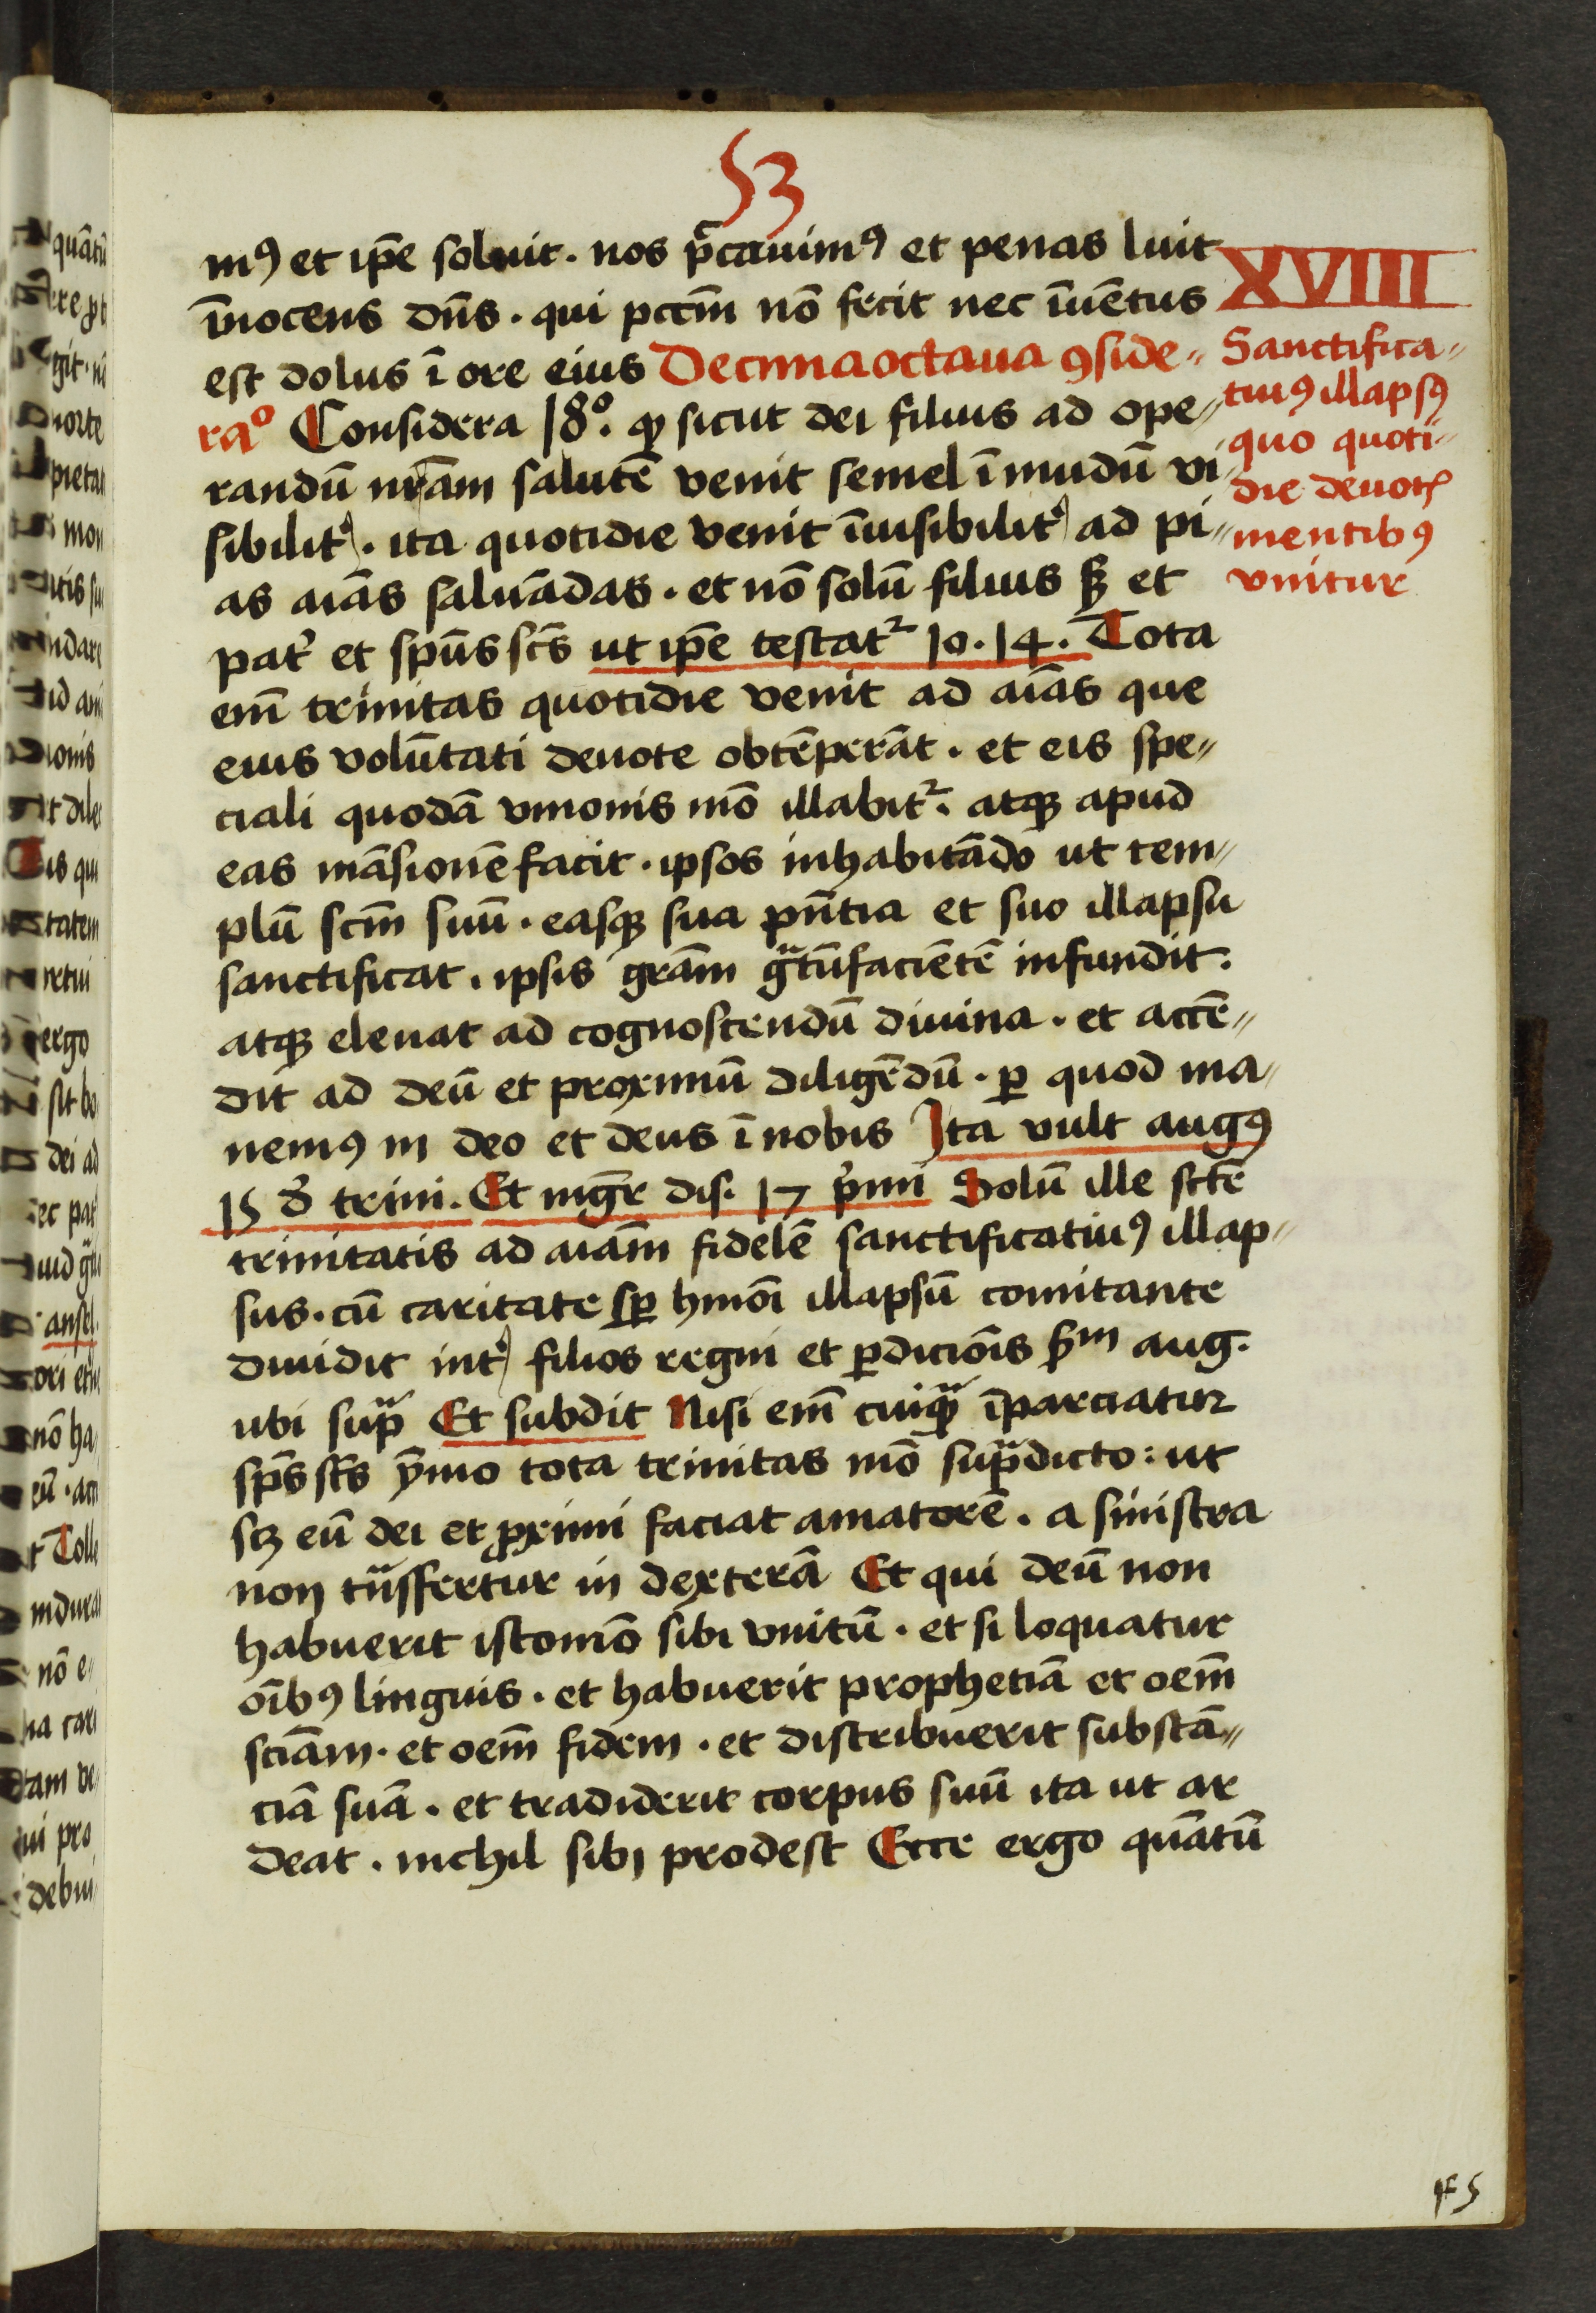 53
mꝰ et ip̄e soluit. nos p̄cauimꝰ et penas luit
īnocens dn̄s. qui pcc̄m nō fecit nec īuētus
est dolus ī ore eius Decimaoctaua ꝯside〃
raᵒ Considera 18ᵒ. ꝙ sicut dei filius ad ope〃
randū nr̄am salutē venit semel ī mūdū vi〃
sibilit᷑. ita quotidie venit īuisibilit᷑ ad pi〃
as aīas saluādas. et nō solū filius sꝫ et
pat᷑ et spūs sc̄s ut ip̄e testat᷑ Io. 14. Tota
em̄ trinitas quotidie venit ad aīas que
eius volūtati deuote obtēperāt. et eis spe〃
ciali quodā vnionis mō illabit᷑. atqꝫ apud
eas māsionē facit. ipsos inhabitādo ut tem〃
plū sc̄m suū. easqꝫ sua pn̄tia et suo illapsu
sanctificat. ipsis gr̄am gᷓtūfaciētē infundit.
atqꝫ eleuat ad cognoscendū diuina. et accē〃
dit ad deū et proximū diligēdū. ꝑ quod ma〃
nemꝰ in deo et deus ī nobis Ita vult augꝰ
15 d᷑ trini. Et mgr̄ dis. 17 p᷑mi Solū ille sc̄te
trinitatis ad aīam fidelē sanctificatiuꝰ illap〃
sus. cū caritate sꝑ hmōi illapsū comitante
diuidit int᷑ filios regni et ꝑdiciōis s̄ᵐ aug.
ubi supᷓ Et subdit Nisi em̄ cuiqᷓꝫ īparciatur
sp̄s sc̄s ȳmo tota trinitas mō supᷓdicto: ut
scꝫ eū dei et ꝓximi faciat amatorē. a sinistra
non tᷓnsfertur in dexterā Et qui deū non
habuerit istomō sibi vnitū. et si loquatur
oībꝰ linguis. et habuerit prophetiā et oēm
sciām. et oēm fidem. et distribuerit substā〃
ciā suā. et tradiderit corpus suū ita ut ar
deat. nichil sibi prodest Ecce ergo quātū
XVIII
Sanctifica〃
tiuꝰ illapsꝰ
quo quoti〃
die deuotꝭ
mentibꝰ
vnitur